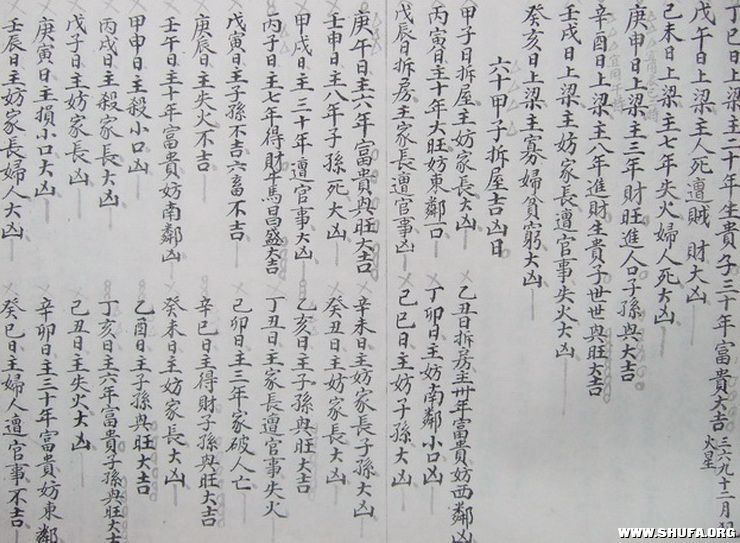 丁巳日上梁主二十年生貴子三十年富貴大吉
三六九十二月
火星
戊午日上梁主人死遭賊 財大凶
己未日上梁主七年失火婦人死大凶
庚申日上梁主三年財旺進人口子孫與大吉
辛酉日上梁主八年進財生貴子世世與旺大吉
壬戌日上梁主妨家長遭官事失火大凶
癸亥日上梁主寡婦貧窮大凶
六十甲子拆屋吉凶日
甲子日拆屋主妨家長大凶 乙丑日拆房主卅年富貴妨西鄰凶
丙寅日主十年大旺妨東鄰一口 丁卯日主妨南鄰小口凶
戊辰日拆房主家長遭官事凶 己巳日主妨子孫大凶
庚午日主六年富貴與旺大吉 辛未日主妨家長子孫大凶
壬申日主八年子孫死大凶 癸丑日主妨家長大凶
甲戌日主三十年遭官事大凶 乙亥日主子孫與旺大吉
丙子日主七年得財牛馬昌盛大吉 丁丑日主家長遭官事失火
戊寅日主子孫不吉六畜不吉 己卯日主三年家破人亡
庚辰日主失火不吉 辛巳日主得財子孫與旺大吉
壬午日主十年富貴妨南鄰凶 癸未日主妨家長大凶
甲申日主殺小口凶 乙酉日主子孫與旺大吉
丙戌日主殺家長大凶 丁亥日主六年富貴子孫與旺大吉
戊子日主妨家長凶 己丑日主失火大凶
庚寅日主損小口大凶 辛卯日主三十年富貴妨東鄰
壬辰日主妨家長婦人大凶 癸巳日主婦人遭官事不吉
WWW.SHUFA.ORG